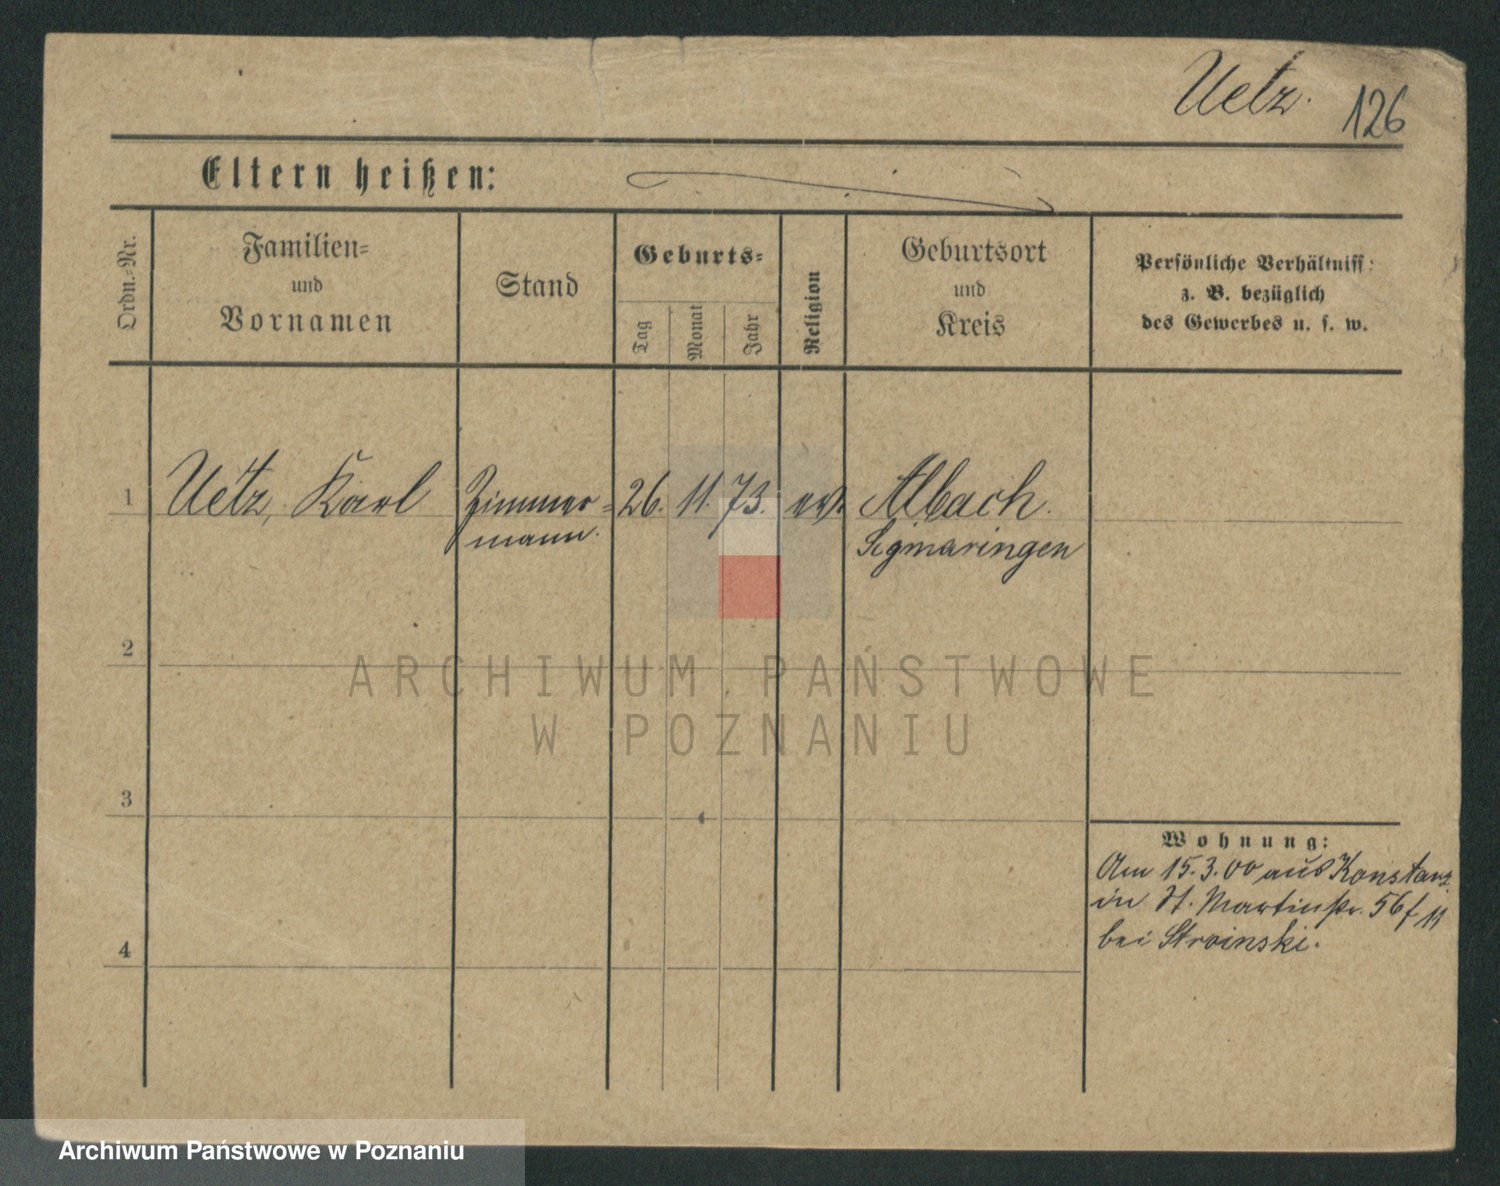 Uetz. 126
Eltern heißen:
Ordn.-Nr.
Familien-
und
Vornamen
Stand
Geburts-
Tag
Monat
Jahr
Religion
Geburtsort
und
Kreis
Persönliche Verhältniss:
z. B. bezüglich
des Gewerbes u. s. w.
1 Uetz, Karl Zimmer= 26. 11. 73. ev. Albach.
mann. Sigmaringen
2
ARCHIWUM PAŃSTWOWE
W POZNANIU
3
Wohnung:
Am 15.3.00 aus Konstanz
in St. Martinstr. 56 f 11
bei Stroinski.
4
Archiwum Państwowe w Poznaniu